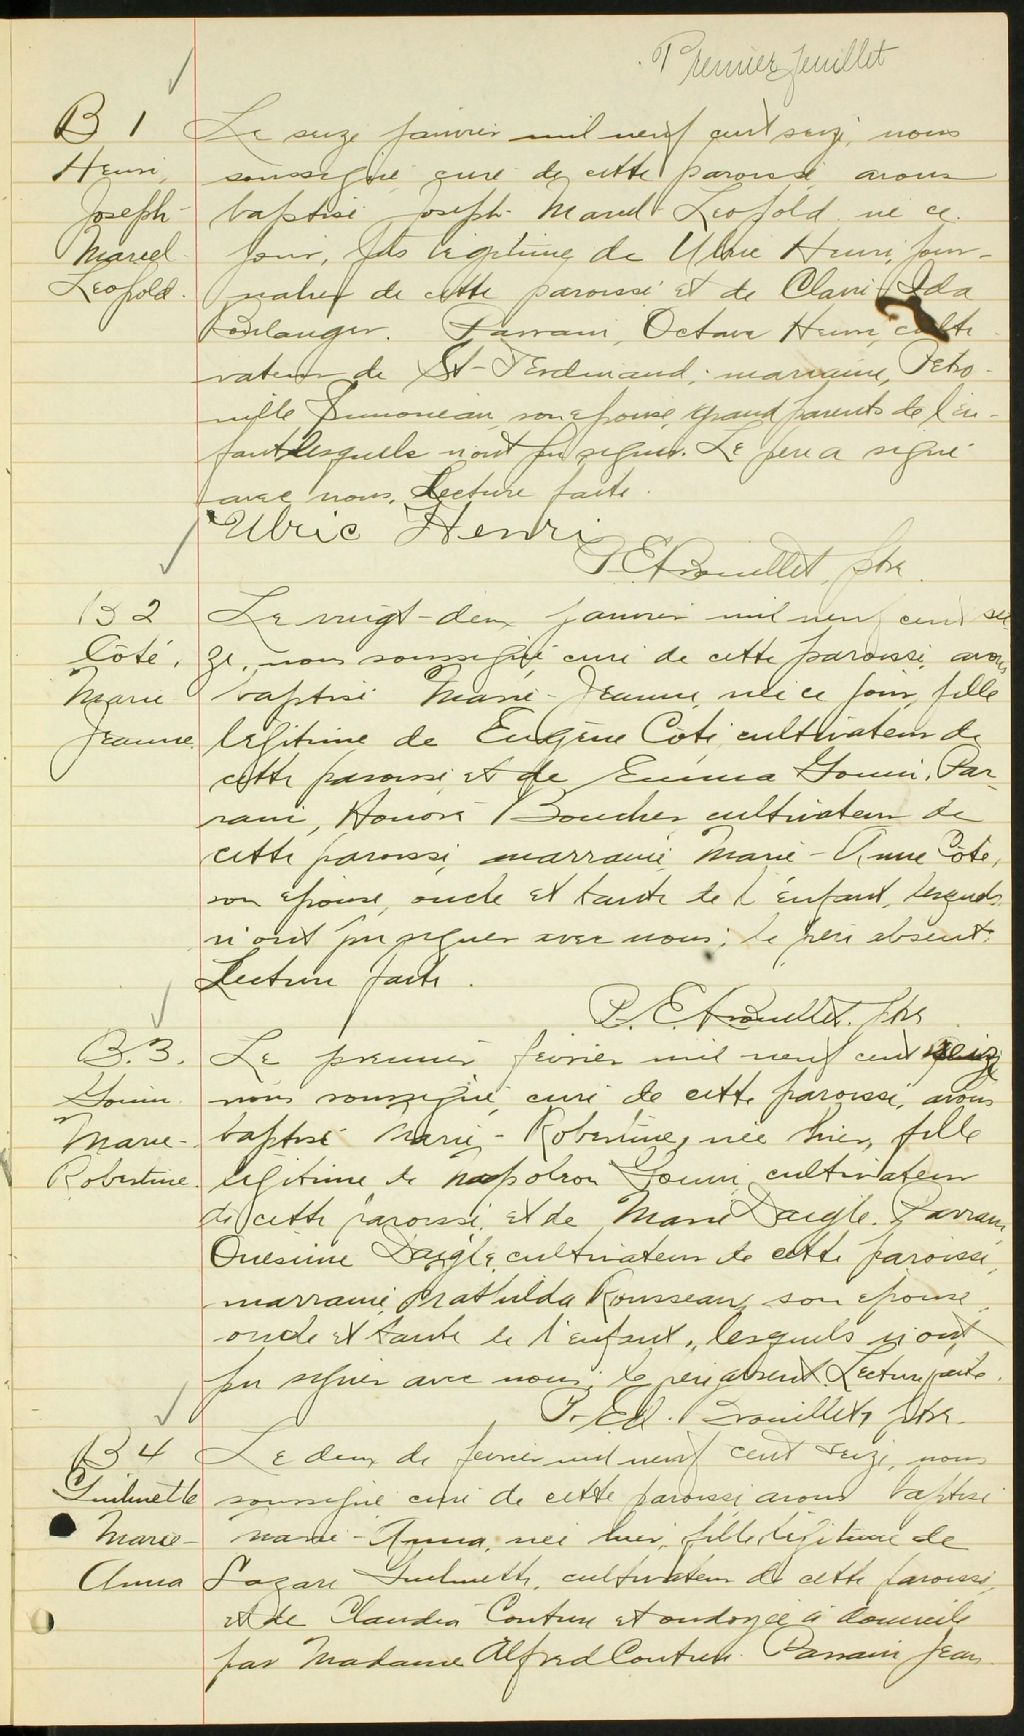 Premier feuillet
B 1
Henri,
Joseph-
Marcel
Leopold.
Le seize janvier mil neuf cent seize, nous
soussigné, curé de cette paroisse, avons
baptisé Joseph-Marcel-Leopold né ce
jour, fils légitime de Ulric Henri, jour-
nalier de cette paroisse et de Clairi Ida
Boulanger. Parrain, Octave Henri, culti-
vateur de St-Ferdinand; marraine, Petro-
nille Simoneau, son épouse, grand parents de l'en-
fant lesquels n'ont pu signer. Le père a signé
avec nous. Lecture faite.
Ulric Henri
P. E. Brouillet, ptre
B 2
Côté,
Marie
Jeanne
Le vingt-deux janvier mil neuf cent sei-
ze, nous soussigné, curé de cette paroisse, avons
baptisé Marie-Jeanne, née ce jour, fille
légitime de Eugène Coté, cultivateur de
cette paroisse, et de Emma Gouin. Par-
rain, Honoré Boucher, cultivateur de
cette paroisse, marraine, Marie-Anne Côté,
son épouse, oncle et tante de l'enfant, lesquels
n'ont pu signer avec nous; le père absent.
Lecture faite.
P. E. Brouillet, ptre
B. 3.
Gouin
Marie-
Robertine.
Le premier février mil neuf cent seize
nous soussigné, curé de cette paroisse, avons
baptisé Marie-Robertine, née hier, fille
légitime de Napoléon Gouin, cultivateur
de cette paroisse, et de Marie Daigle. Parrain,
Onésime Daigle, cultivateur de cette paroisse,
marraine, Mathilda Rousseau, son épouse,
oncle et tante de l'enfant, lesquels n'ont
pu signer avec nous; le père absent. Lecture faite.
P. Ed. Brouillet, ptre.
B 4
Guilmette
Marie-
Anna
Le deux de février mil neuf cent seize, nous
soussigné curé de cette paroisse avons baptisé
Marie-Anna, née hier, fille légitime de
Lazare Guilmette, cultivateur de cette paroisse,
et de Claudia Couture et ondoyée à domicile
par Madame Alfred Couture. Parrain Jean